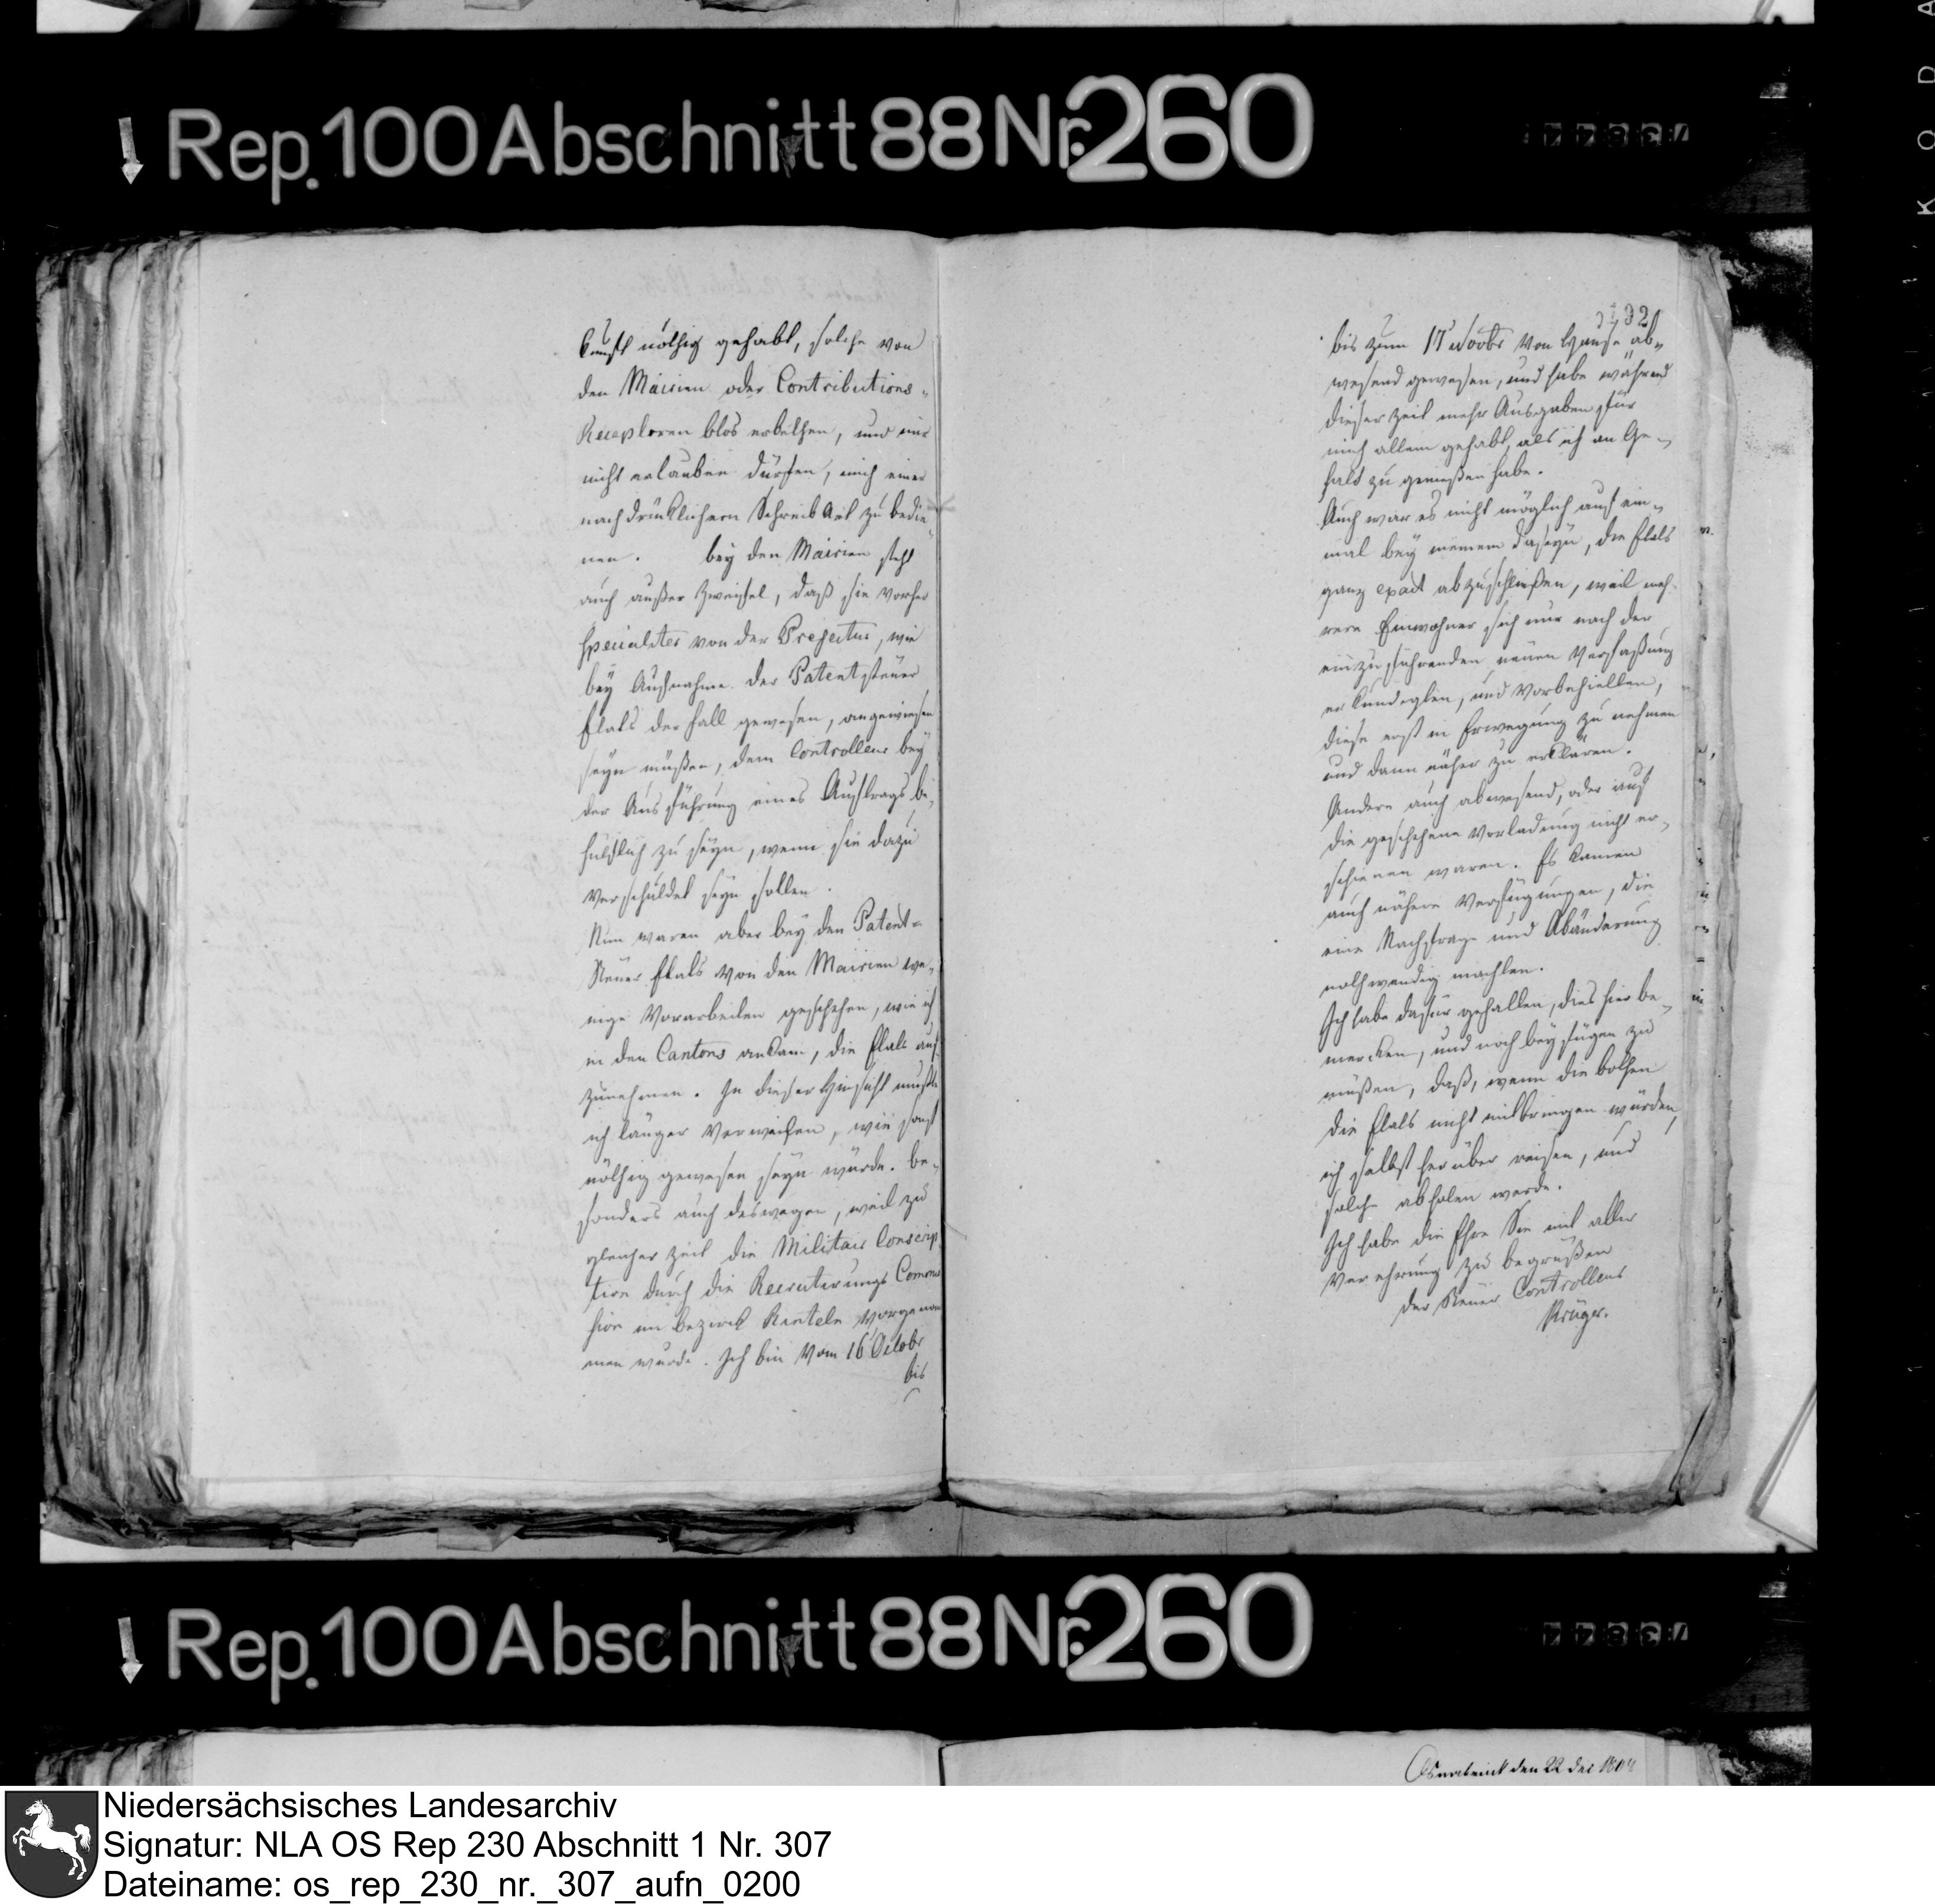 Rep. 100 Abschnitt 88 Nr. 260
Kunst nöthig gehabt, solche von
den Mairien oder Contributions-
Receptoren blos erbethen, und mir
nicht erlauben dürfen, mich einer
nachdrücklichern Schreib Art zu bedie-
nen. bey den Mairien steht
auch außer Zweifel, daß sie vorher
specialiter von der Prefectur, wie
bey Aufnahme der Patentsteuer
Etats der Fall gewesen, angewiesen
seyn müßen, dem Controlleur bey
der Ausführung eines Auftrags be-
hülflich zu seyn, wenn sie dazu
verschuldet seyn sollen.
Nun waren aber bey den Patent-
Steuer Etats von den Mairien we-
nige Vorarbeiten geschehen, wie ich
in den Cantons ankam, die Etats auf
zunehmen. In dieser Hinsicht mußte
ich länger verweilen, wie sonst
nöthig gewesen seyn würde. be-
sonders auch deswegen, weil zu
gleicher Zeit die Militair Conscrip
tion durch die Recrutirungs Commis
sion im bezirck Rinteln vorgenom
men wurde. Ich bin vom 16 Octobr
bis
bis zum 17 Novbr von Hause ab-
wesend gewesen, und habe während
dieser Zeit mehr Ausgaben für
mich allein gehabt, als ich an Ge-
halt zu genießen habe.
Auch war es nicht möglich auf ein-
mal bey meinem Daseyn, die Etats
ganz exact abzuschließen, weil meh-
rere Einwohner sich nur nach der
einzuführenden neuen Verfaßung
erkundigten, und vorbehielten,
diese erst in Erwegung zu nehmen
und dann näher zu erklären.
Andere auch abwesend, oder auf
die geschehene Vorladung nicht er-
schienen waren. Es kamen
auch nähere Verfügungen, die
eine Nachfrage und Abänderung
nothwendig machten.
Ich habe dafür gehalten, dies hier be-
mercken, und noch beyfügen zu
müßen, daß, wenn die bothen
die Etats nicht mitbringen würden,
ich selbst herüber reisen, und
solche abholen werde.
Ich habe die Ehre Sie mit aller
Verehrung zu begrüßen
der Steuer Controlleur
Krüger.
Rep. 100 Abschnitt 88 Nr. 260
Osnabrück den 22 Dec
Niedersächsisches Landesarchiv
Signatur: NLA OS Rep 230 Abschnitt 1 Nr. 307
Dateiname: os_rep_230_nr._307_aufn_0200